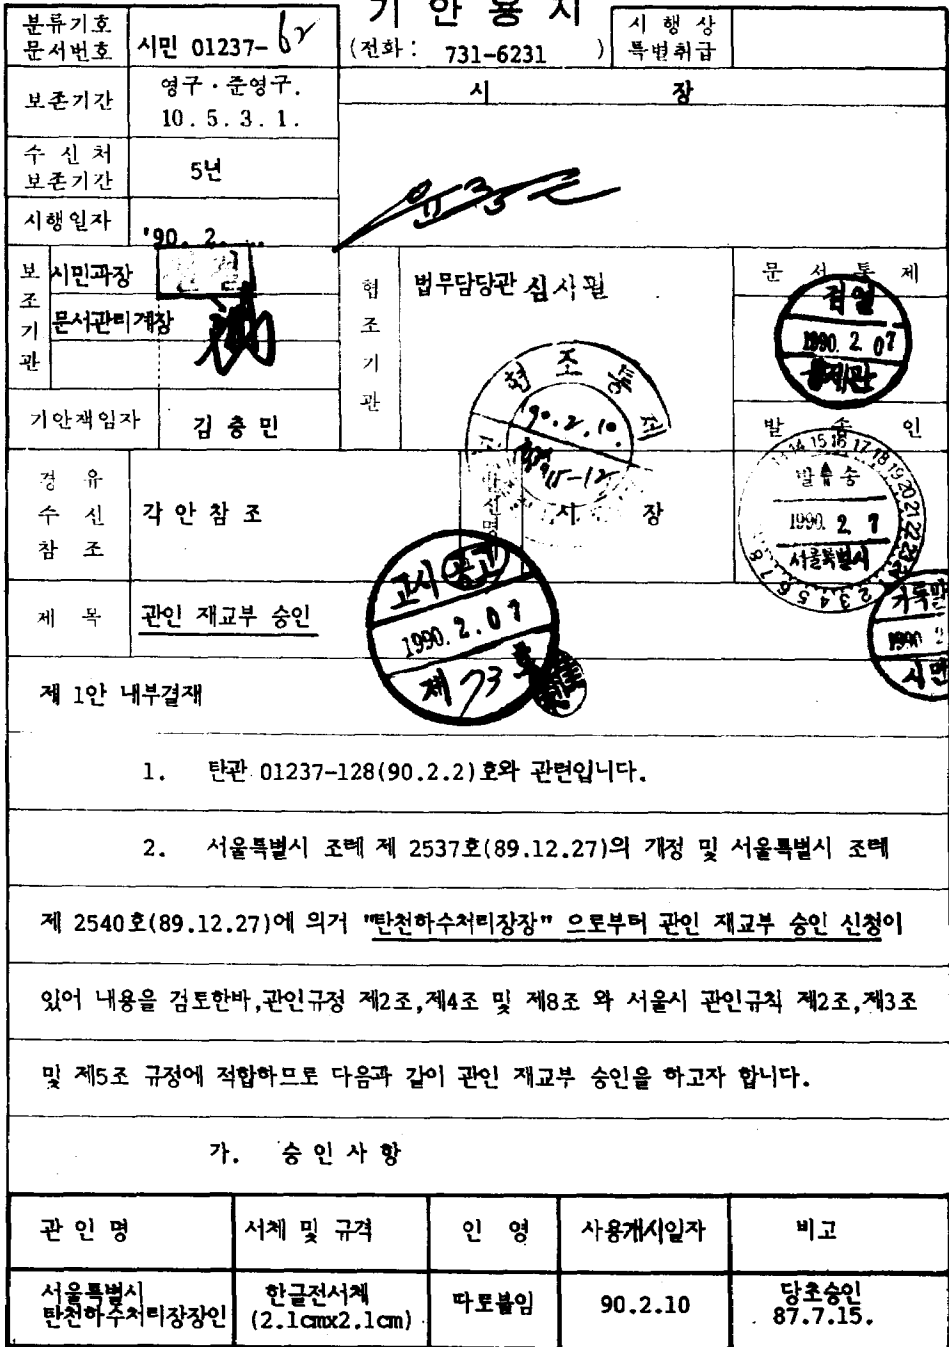 기 안 용 지
분류기호
문서번호
시민 01237-62
(전화 : 731-6231 )
시 행 상
특별취급
보존기간
영구 · 준영구.
10 . 5 . 3 . 1 .
시 장
수 신 처
보존기간
5년
시행일자
'90. 2. ..
보조기관
시민과장
문서관리계장
협조기관
법무담당관 심사필
문 서 통 제
검열
1990. 2. 07
통제관
협 조 통 제
'90.2.10.
기안책임자
김 충 민
발 송 인
발 송
1990. 2. 7
서울특별시
경 유
수 신
참 조
각 안 참 조
발신명의
시 장
고시 공고
1990. 2. 07
제 73 호
제 목
관인 재교부 승인
1990 2
제 1안 내부결재
1. 탄관 01237-128(90.2.2)호와 관련입니다.
2. 서울특별시 조례 제 2537호(89.12.27)의 개정 및 서울특별시 조례
제 2540호(89.12.27)에 의거 "탄천하수처리장장" 으로부터 관인 재교부 승인 신청이
있어 내용을 검토한바,관인규정 제2조,제4조 및 제8조 와 서울시 관인규칙 제2조,제3조
및 제5조 규정에 적합하므로 다음과 같이 관인 재교부 승인을 하고자 합니다.
가. 승 인 사 항
관 인 명 서체 및 규격 인 영 사용개시일자 비고
서울특별시
탄천하수처리장장인
한글전서체
(2.1cmx2.1cm)
따로붙임
90.2.10
당초승인
87.7.15.